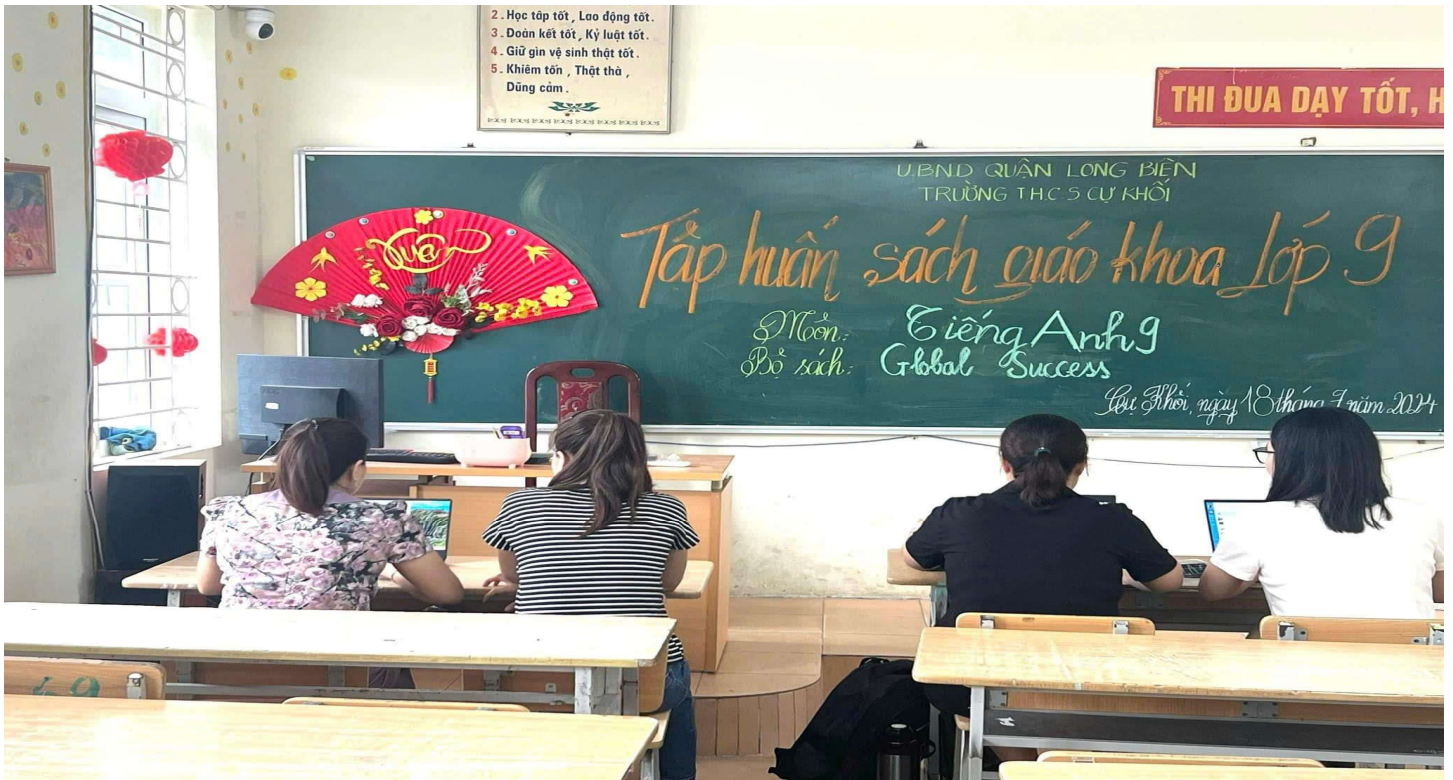 2. Học tập tốt, Lao động tốt.
3. Đoàn kết tốt, Kỷ luật tốt.
4. Giữ gìn vệ sinh thật tốt.
5. Khiêm tốn, Thật thà,
Dũng cảm.
THI ĐUA DẠY TỐT, H
U.BND QUẬN LONG BIÊN
TRƯỜNG T.H.C.S CỰ KHỐI
Tập huấn sách giáo khoa Lớp 9
Xuân
Môn: Tiếng Anh 9
Bộ sách: Global Success
Cự Khối, ngày 18 tháng 7 năm 2024
49